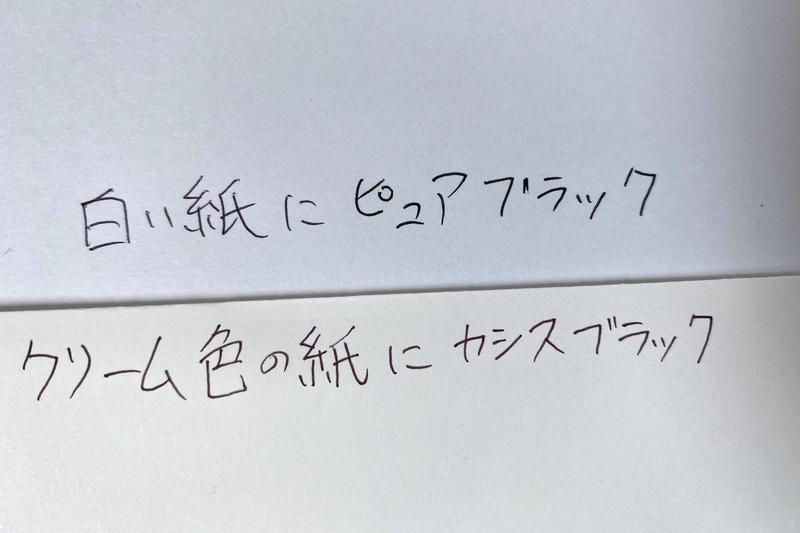 白い紙に ピュアブラック
クリーム色の紙に カシスブラック